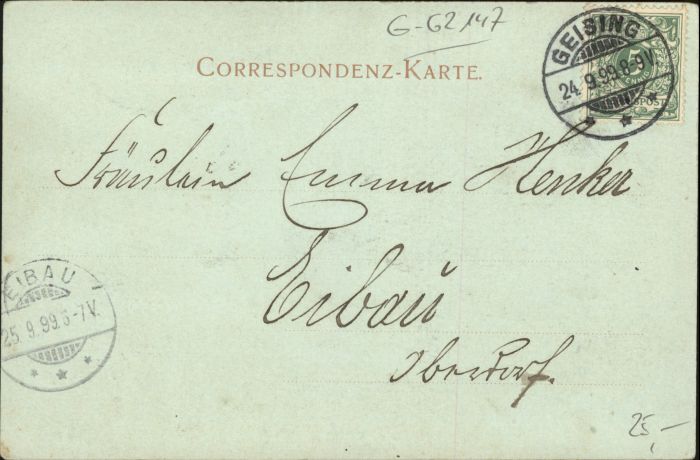 G-G2147
GEISING
24.9.99.8-9V.
5
CORRESPONDENZ-KARTE.
Fräulein Emma Henker
Eibau
Oberdorf.
EIBAU
25.9.99.6-7V.
25,-